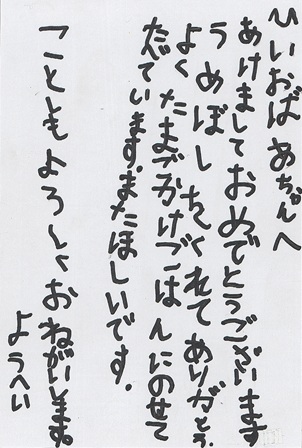 ひいおばあちゃんへ
あけましておめでとうございます
うめぼしをくれてありがとう
よくたまごかけごはんにのせて
だています。またほしいです。
こともよろしくおねがいします。
ようへい